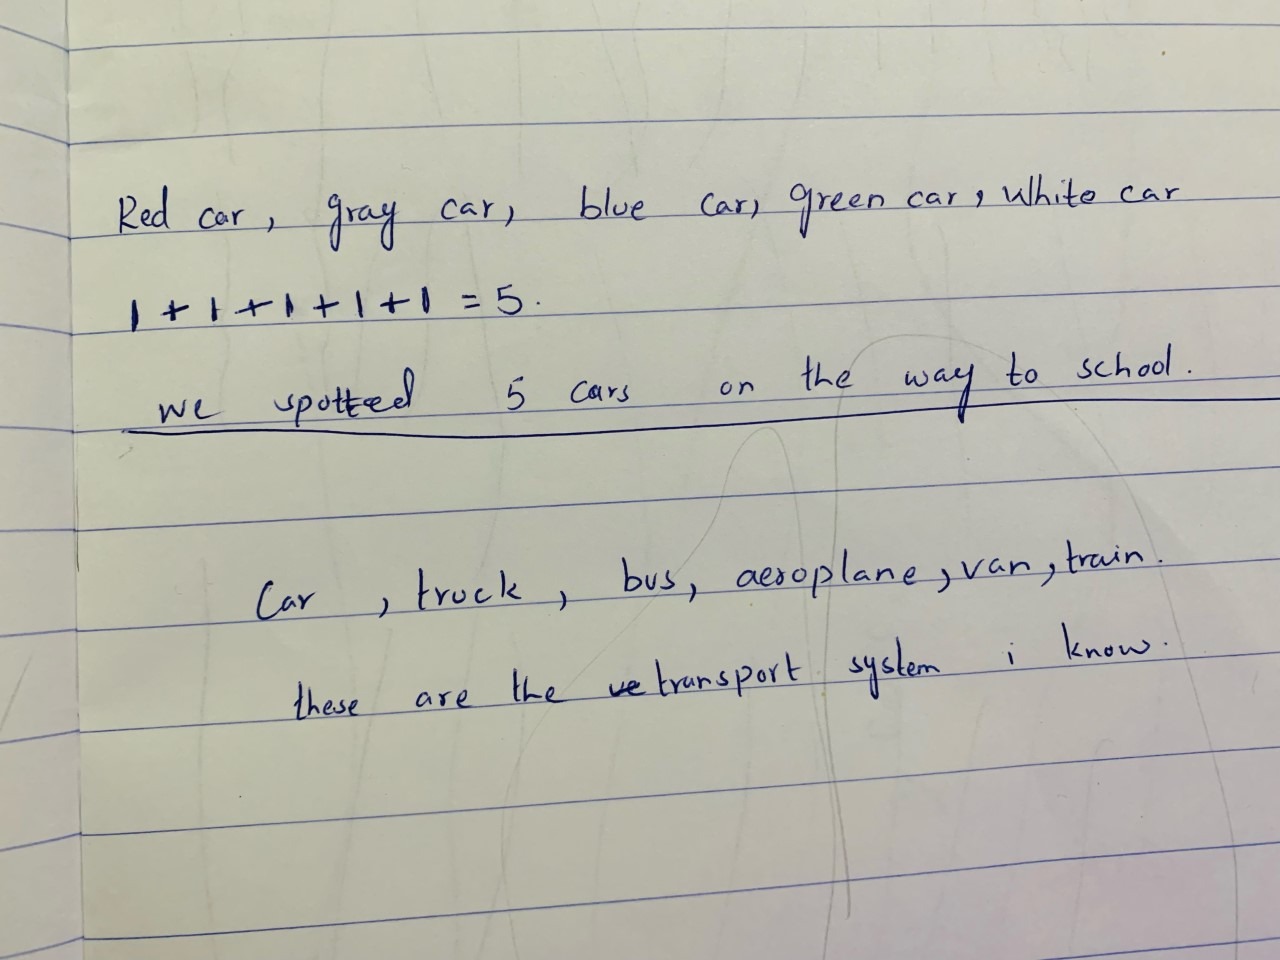 Red car, gray car, blue car, green car, white car
1 + 1 + 1 + 1 + 1 = 5.
we spotted 5 cars on the way to school.
Car , truck , bus, aeroplane, van, train.
these are the ve transport system i know.